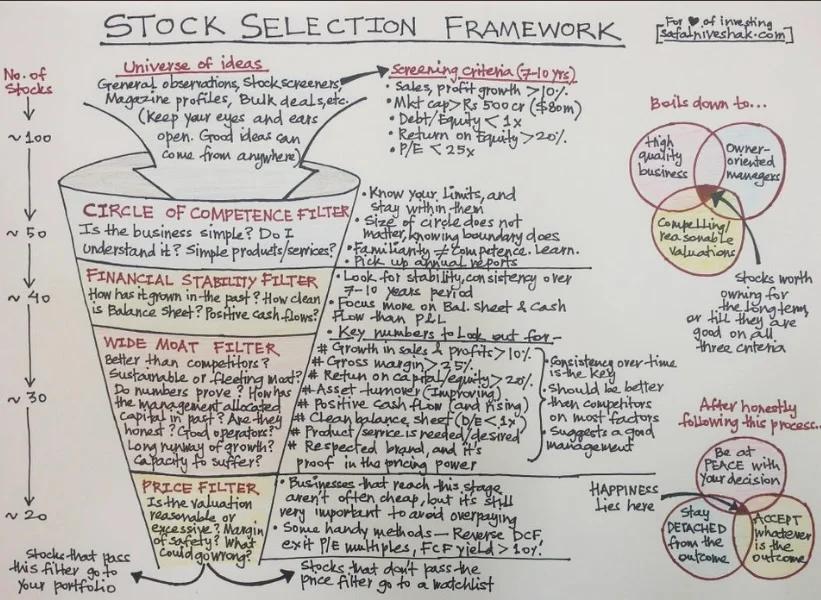 STOCK SELECTION FRAMEWORK
For ♥ of investing
[safalniveshak.com]
No. of
Stocks
~ 100
~ 50
~ 40
~ 30
~ 20
Universe of ideas
General observations, Stock screeners,
Magazine profiles, Bulk deals, etc.
(Keep your eyes and ears
open. Good ideas can
come from anywhere)
Screening Criteria (7-10 yrs)
• Sales, profit growth >10%
• Mkt cap > Rs 500 cr ($80m)
• Debt/Equity < 1x
• Return on Equity > 20%
• P/E < 25x
CIRCLE OF COMPETENCE FILTER
Is the business simple? Do I
understand it? Simple products/services?
• Know your limits, and
stay within them
• Size of circle does not
matter, knowing boundary does
• Familiarity ≠ Competence. Learn.
• Pick up annual reports
FINANCIAL STABILITY FILTER
How has it grown in the past? How clean
is Balance Sheet? Positive cash flows?
• Look for stability, consistency over
7-10 years period
• Focus more on Bal. Sheet & Cash
Flow than P&L
WIDE MOAT FILTER
Better than competitors?
Sustainable or fleeting moat?
Do numbers prove? How has
the management allocated
capital in past? Are they
honest? Good operators?
Long runway of growth?
Capacity to suffer?
• Key numbers to look out for -
# Growth in sales & profits > 10%
# Gross margin > 25%
# Return on capital/equity > 20%
# Asset turnover (Improving)
# Positive cash flow (and rising)
# Clean balance sheet (D/E < 1x)
# Product/service is needed/desired
# Respected brand, and it's
proof in the pricing power
• Consistency over time
is the key
• Should be better
then competitors
on most factors
• Suggests a good
management
PRICE FILTER
Is the valuation
reasonable or
excessive? Margin
of safety? What
could go wrong?
• Businesses that reach this stage
aren't often cheap, but it's still
very important to avoid overpaying
• Some handy methods — Reverse DCF,
exit P/E multiples, FCF yield > 10%
Stocks that pass
this filter go to
your portfolio
Stocks that don't pass the
price filter go to a watchlist
Boils down to...
High
quality
business
Owner-
oriented
managers
Compelling/
reasonable
valuations
Stocks worth
owning for
the long term,
or till they are
good on all
three criteria
After honestly
following this process..
Be at
PEACE with
your decision
HAPPINESS
lies here
Stay
DETACHED
from the
outcome
ACCEPT
whatever
is the
outcome